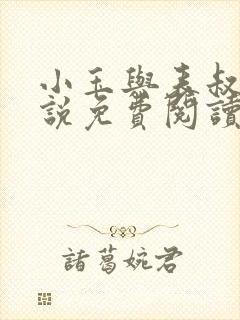 小玉與表叔
說免費閱讀
諸葛婉君